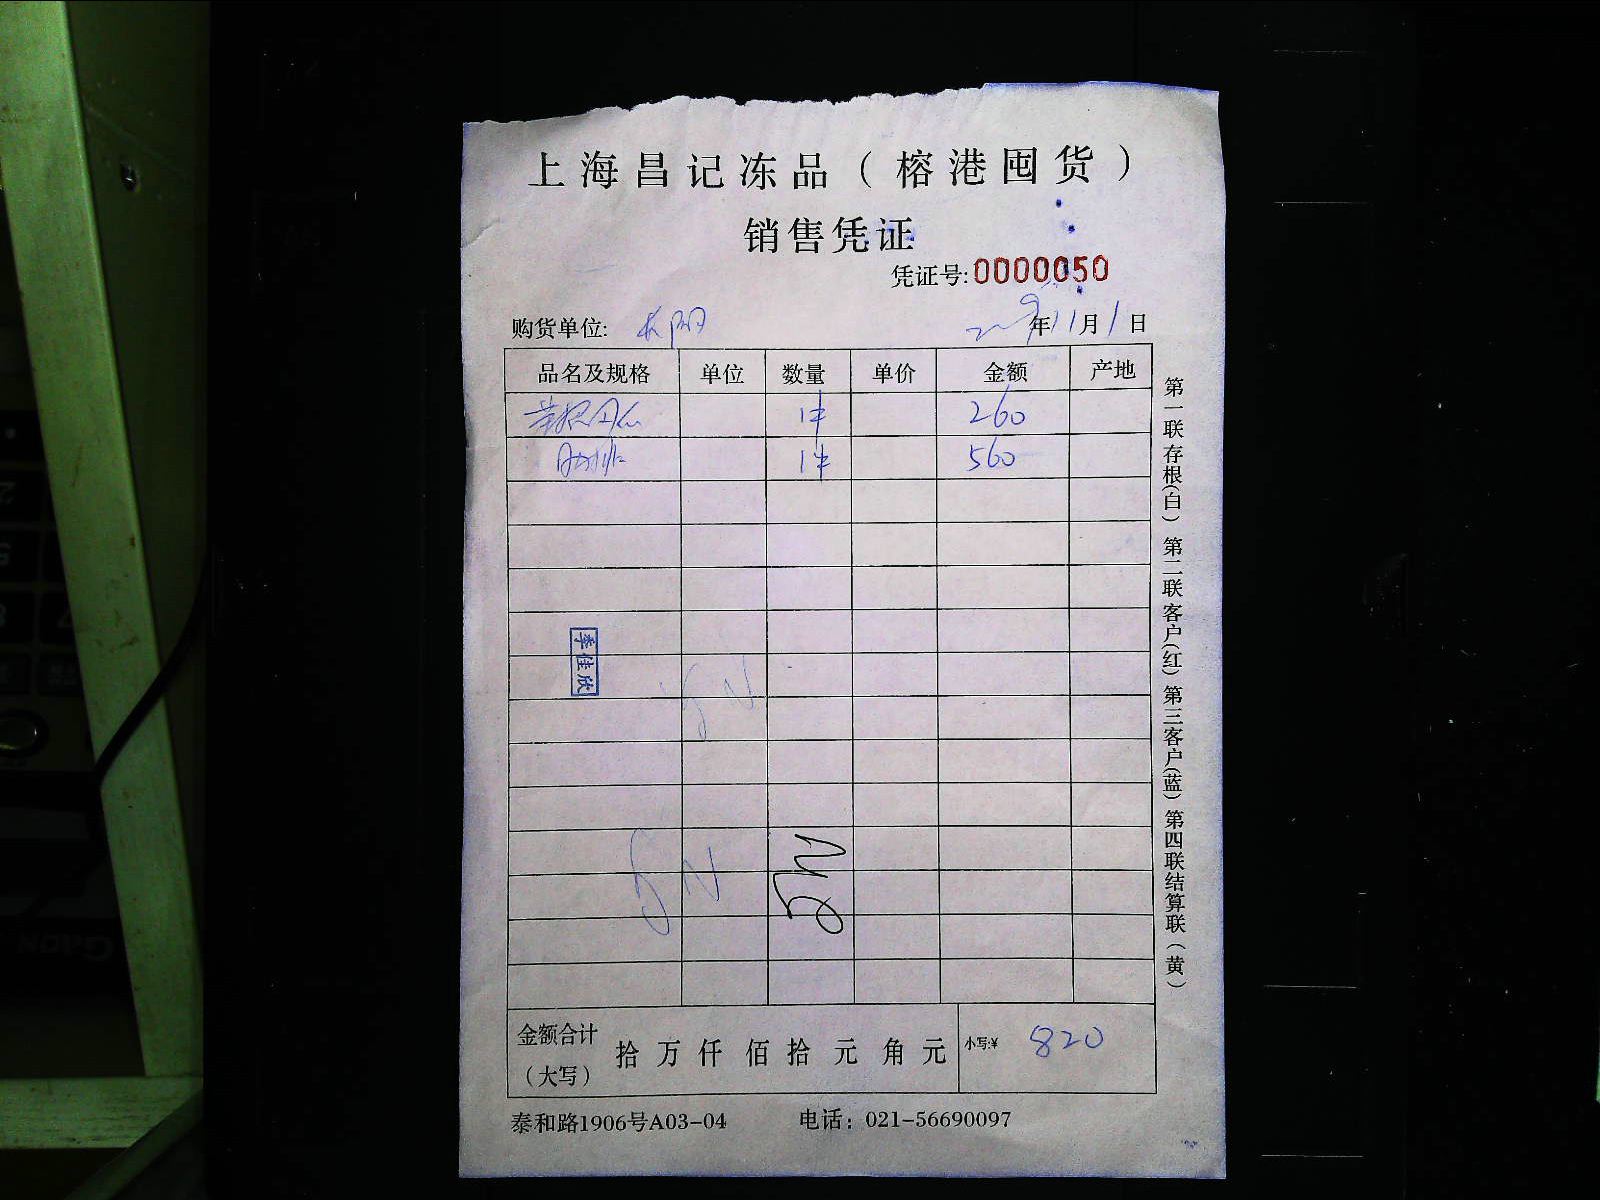 上海昌记冻品（榕港囤货）
销售凭证
凭证号:0000050
购货单位: 长阳 年11月1日
品名及规格 单位 数量 单价 金额 产地
1件 260
1件 560
季佳欣
金额合计（大写） 拾 万 仟 佰 拾 元 角 元 小写:¥ 820
泰和路1906号A03-04 电话：021-56690097
第一联存根(白) 第二联客户(红) 第三客户(蓝) 第四联结算联(黄)